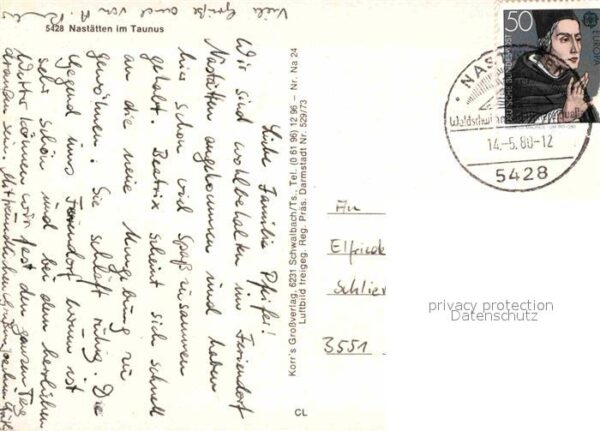 Viele Grüße auch von A.
5428 Nastätten im Taunus
Liebe Familie Pfeifer!
Wir sind wohlbehalten im Feriendorf
Nastätten angekommen und haben
hier schon viel Spaß zusammen
gehabt. Beatrix scheint sich schnell
an die neue Umgebung zu
gewöhnen. Sie schläft ruhig. Die
Gegend ums Feriendorf herum ist
sehr schön und bei dem herrlichen
Wetter können wir fast den ganzen Tag
draußen sein. Mit freundlichen Grüßen
Korr's Großverlag, 6231 Schwalbach/Ts., Tel. (0 61 96) 12 96 – Nr. Na 24
Luftbild freigeg. Reg. Präs. Darmstadt Nr. 529/73
CL
50
EUROPA
DEUTSCHE BUNDESPOST
14.-5.80-12
5428
An
Elfriede
Schlier
3551
privacy protection
Datenschutz